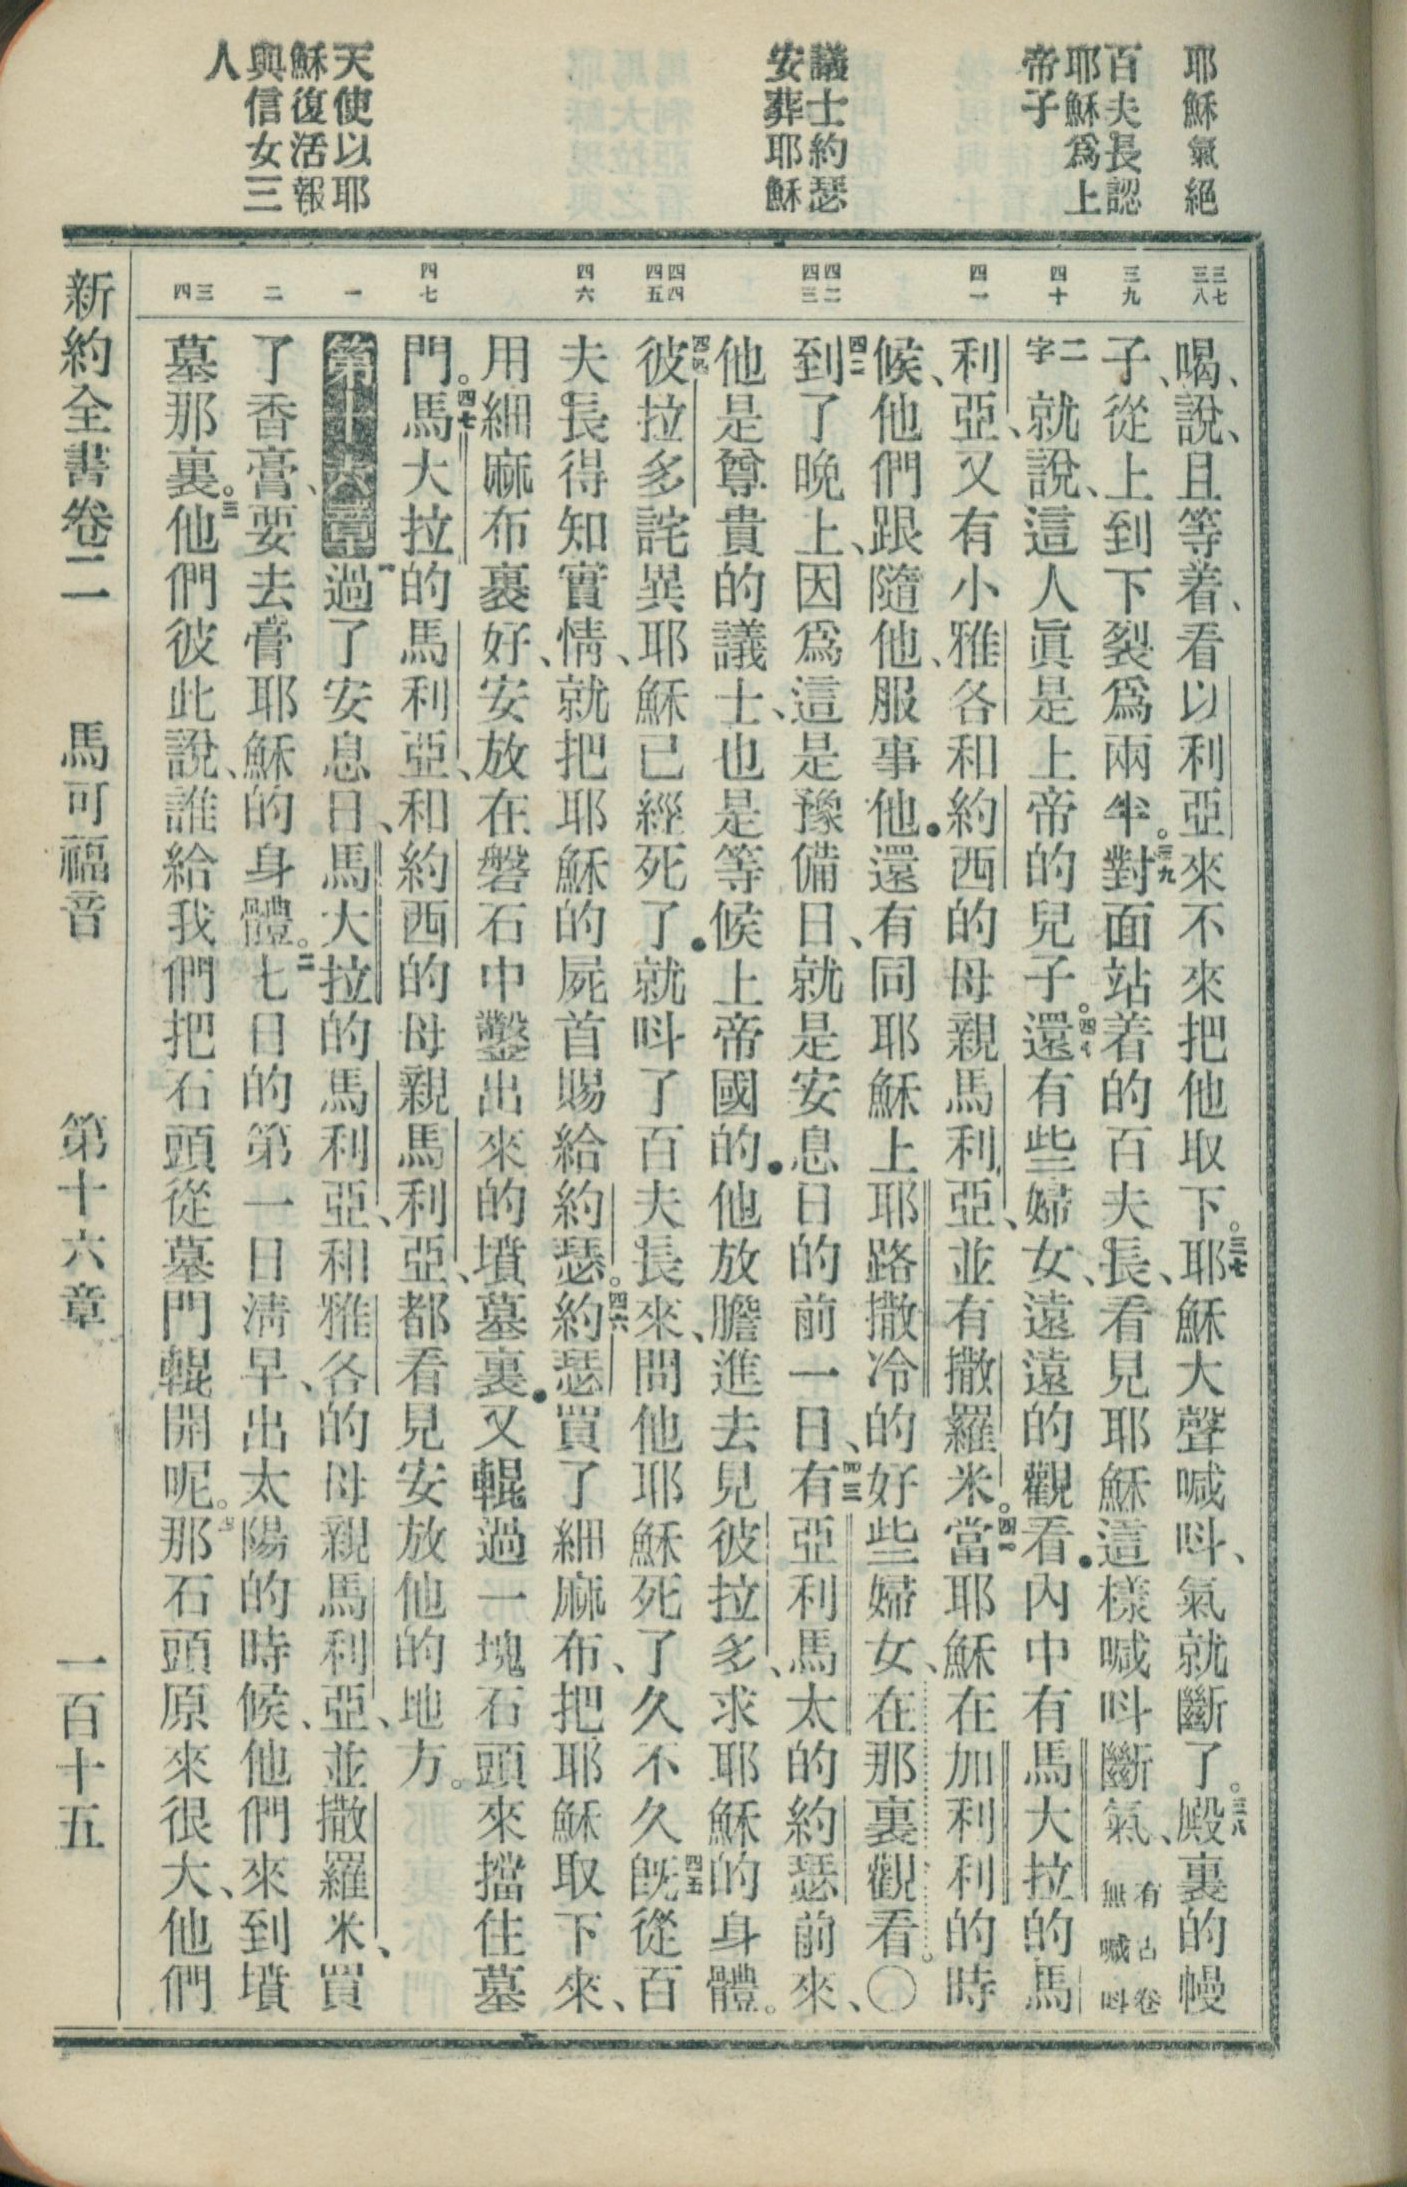 耶穌氣絕
百夫長認
耶穌爲上
帝子
議士約瑟
安葬耶穌
天使以耶
穌復活報
與信女三
人
三七
三八
三九
四十
四一
四二
四三
四四
四五
四六
四七
一
二
三
四
喝、說、且等着、看以利亞來不來把他取下。三七耶穌大聲喊呌、氣就斷了。三八殿裏的幔
子、從上到下裂爲兩半。三九對面站着的百夫長、看見耶穌這樣喊呌斷氣、有古卷無喊呌
二字就說、這人眞是上帝的兒子。四十還有些婦女、遠遠的觀看．內中有馬大拉的馬
利亞、又有小雅各和約西的母親馬利亞、並有撒羅米。四一當耶穌在加利利的時
候、他們跟隨他、服事他．還有同耶穌上耶路撒冷的好些婦女、在那裏觀看。〇
四二到了晚上、因爲這是豫備日、就是安息日的前一日、四三有亞利馬太的約瑟前來、
他是尊貴的議士、也是等候上帝國的．他放膽進去見彼拉多、求耶穌的身體。
四四彼拉多詫異耶穌已經死了．就呌了百夫長來、問他耶穌死了久不久四五旣從百
夫長得知實情、就把耶穌的屍首賜給約瑟。四六約瑟買了細麻布、把耶穌取下來、
用細麻布裹好、安放在磐石中鑿出來的墳墓裏．又輥過一塊石頭來擋住墓
門。四七馬大拉的馬利亞、和約西的母親馬利亞、都看見安放他的地方。
第十六章 一過了安息日、馬大拉的馬利亞、和雅各的母親馬利亞、並撒羅米、買
了香膏、要去膏耶穌的身體。二七日的第一日淸早、出太陽的時候、他們來到墳
墓那裏。三他們彼此說、誰給我們把石頭從墓門輥開呢。四那石頭原來很大、他們
新約全書卷二 馬可福音 第十六章 一百十五